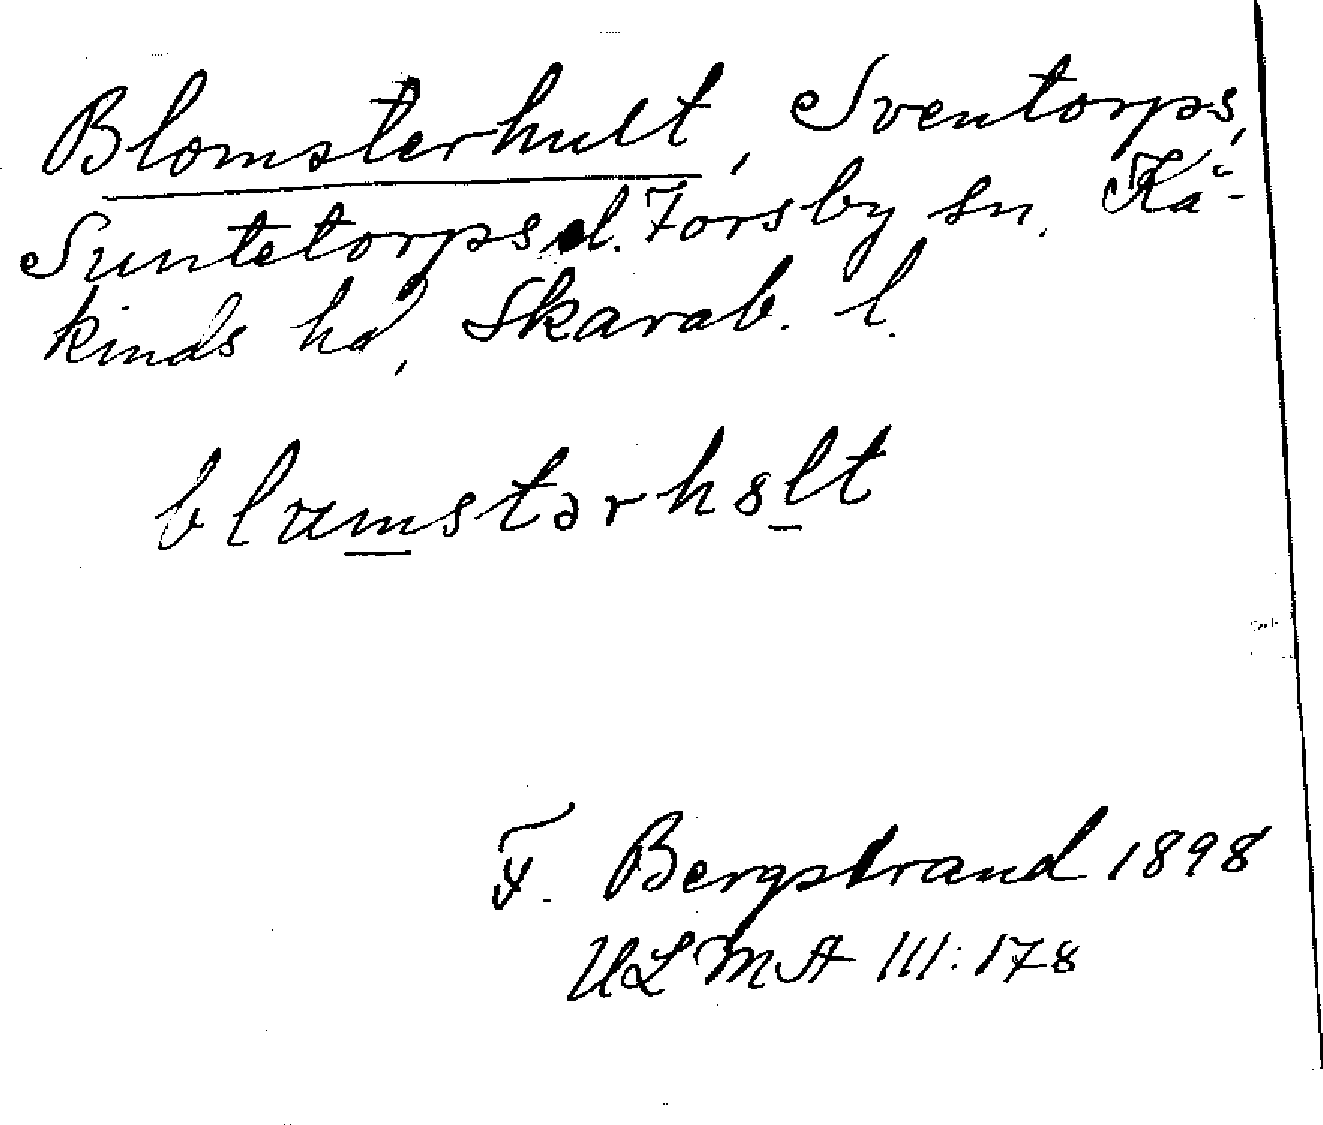 Blomsterhult, Sventorps,
Suntetorps d. Forsby sn. Kå-
kinds hd, Skarab. l.
F. Bergstrand 1898
ULMA III:178